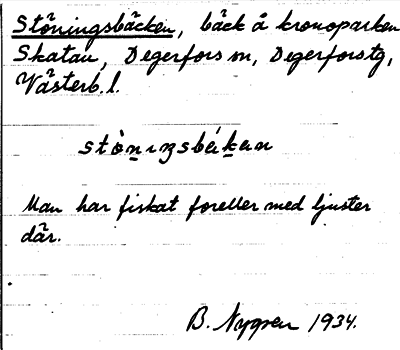 Stöningsbäcken, bäck å kronoparken
Skatan, Degerfors sn, Degerfors tg,
Västerb. l.
stöningsbäkan
Man har fiskat foreller med ljuster
där.
B. Nygren 1934.